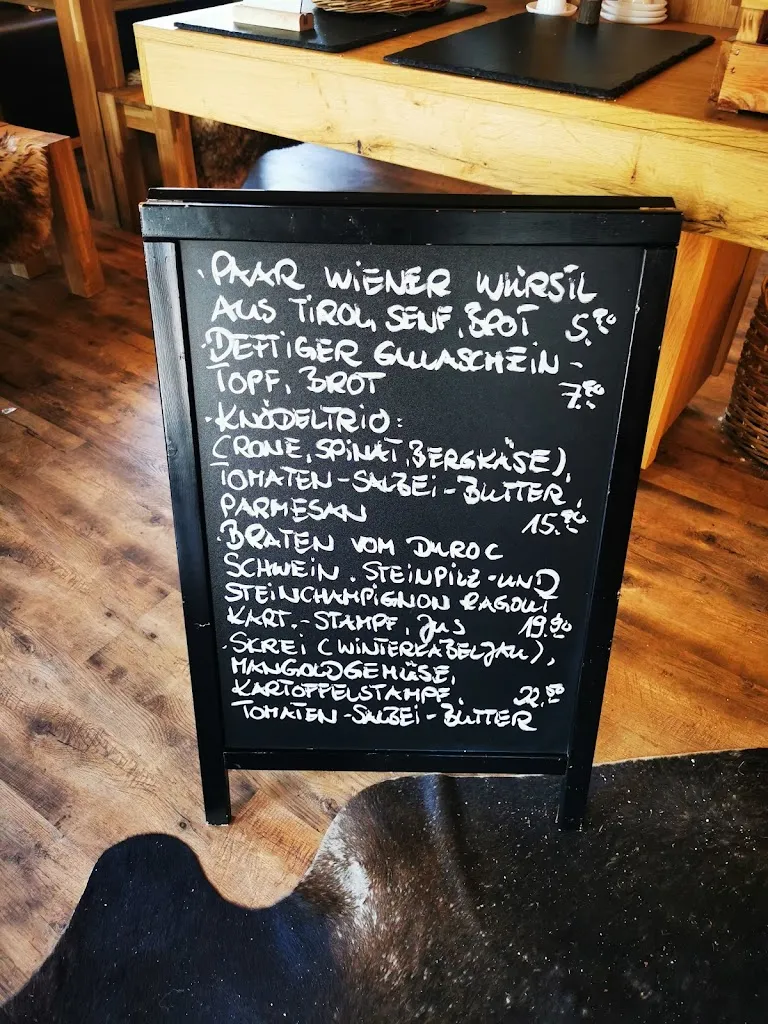 · PAAR WIENER WÜRSTL
AUS TIROL, SENF, BROT 5.90
· DEFTIGER GULASCHEIN-
TOPF, BROT 7.90
· KNÖDELTRIO:
(RONE, SPINAT, BERGKÄSE),
TOMATEN-SALBEI-BUTTER,
PARMESAN 15.90
· BRATEN VOM DUROC
SCHWEIN, STEINPILZ-UND
STEINCHAMPIGNON RAGOUT
KART.-STAMPF, JUS 19.90
· SKREI (WINTERKABELJAU),
MANGOLDGEMÜSE,
KARTOFFELSTAMPF, 22.50
TOMATEN-SALBEI-BUTTER